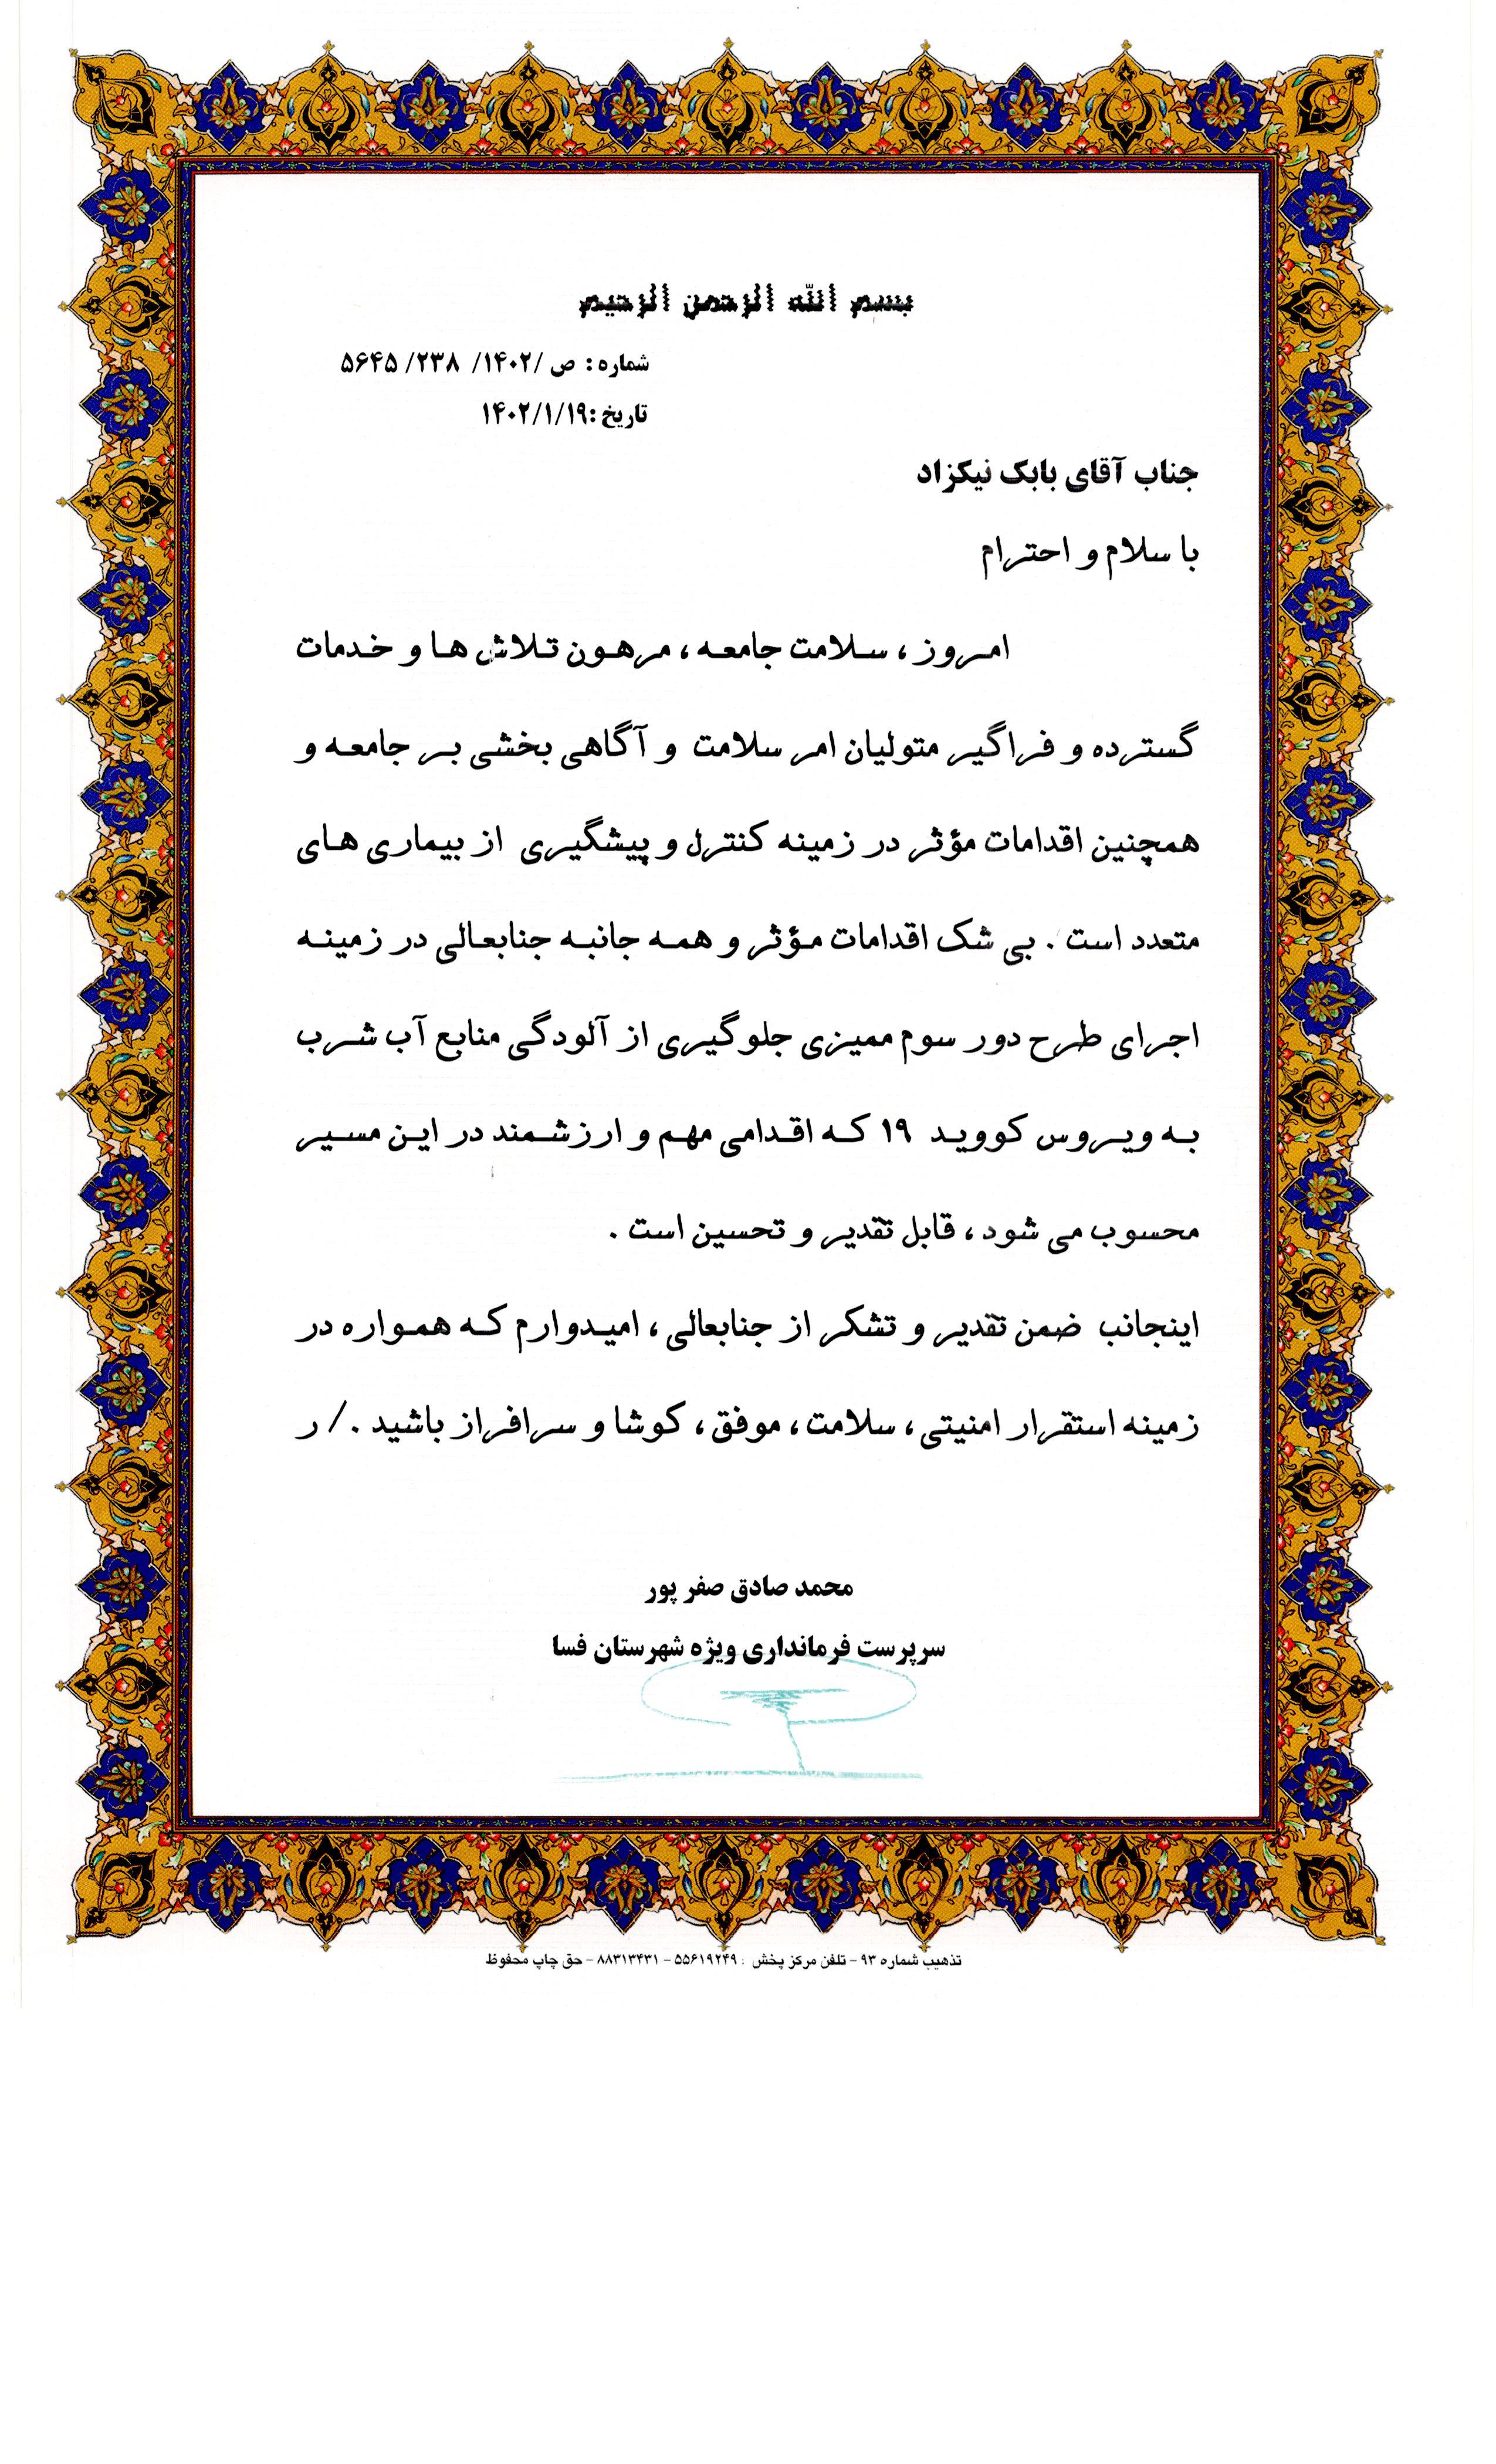 بسم الله الرحمن الرحیم
شماره: ص /۱۴۰۲/ ۲۳۸/ ۵۶۴۵
تاریخ:۱۴۰۲/۱/۱۹
جناب آقای بابک نیکزاد
با سلام و احترام
امروز ، سلامت جامعه ، مرهون تلاش ها و خدمات
گسترده و فراگیر متولیان امر سلامت و آگاهی بخشی بر جامعه و
همچنین اقدامات مؤثر در زمینه کنترل و پیشگیری از بیماری های
متعدد است . بی شک اقدامات مؤثر و همه جانبه جنابعالی در زمینه
اجرای طرح دور سوم ممیزی جلوگیری از آلودگی منابع آب شرب
به ویروس کووید ۱۹ که اقدامی مهم و ارزشمند در این مسیر
محسوب می شود ، قابل تقدیر و تحسین است .
اینجانب ضمن تقدیر و تشکر از جنابعالی ، امیدوارم که همواره در
زمینه استقرار امنیتی ، سلامت ، موفق ، کوشا و سرافراز باشید ./ ر
محمد صادق صفر پور
سرپرست فرمانداری ویژه شهرستان فسا
تذهیب شماره ۹۳ - تلفن مرکز پخش : ۵۵۶۱۹۲۴۹ - ۸۸۳۱۳۴۳۱ - حق چاپ محفوظ